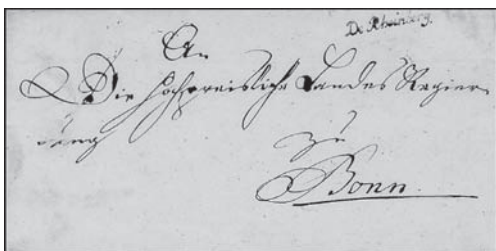 De Rheinberg.
An
Die Hochpreisliche Landes Regier
ung
zu
Bonn.